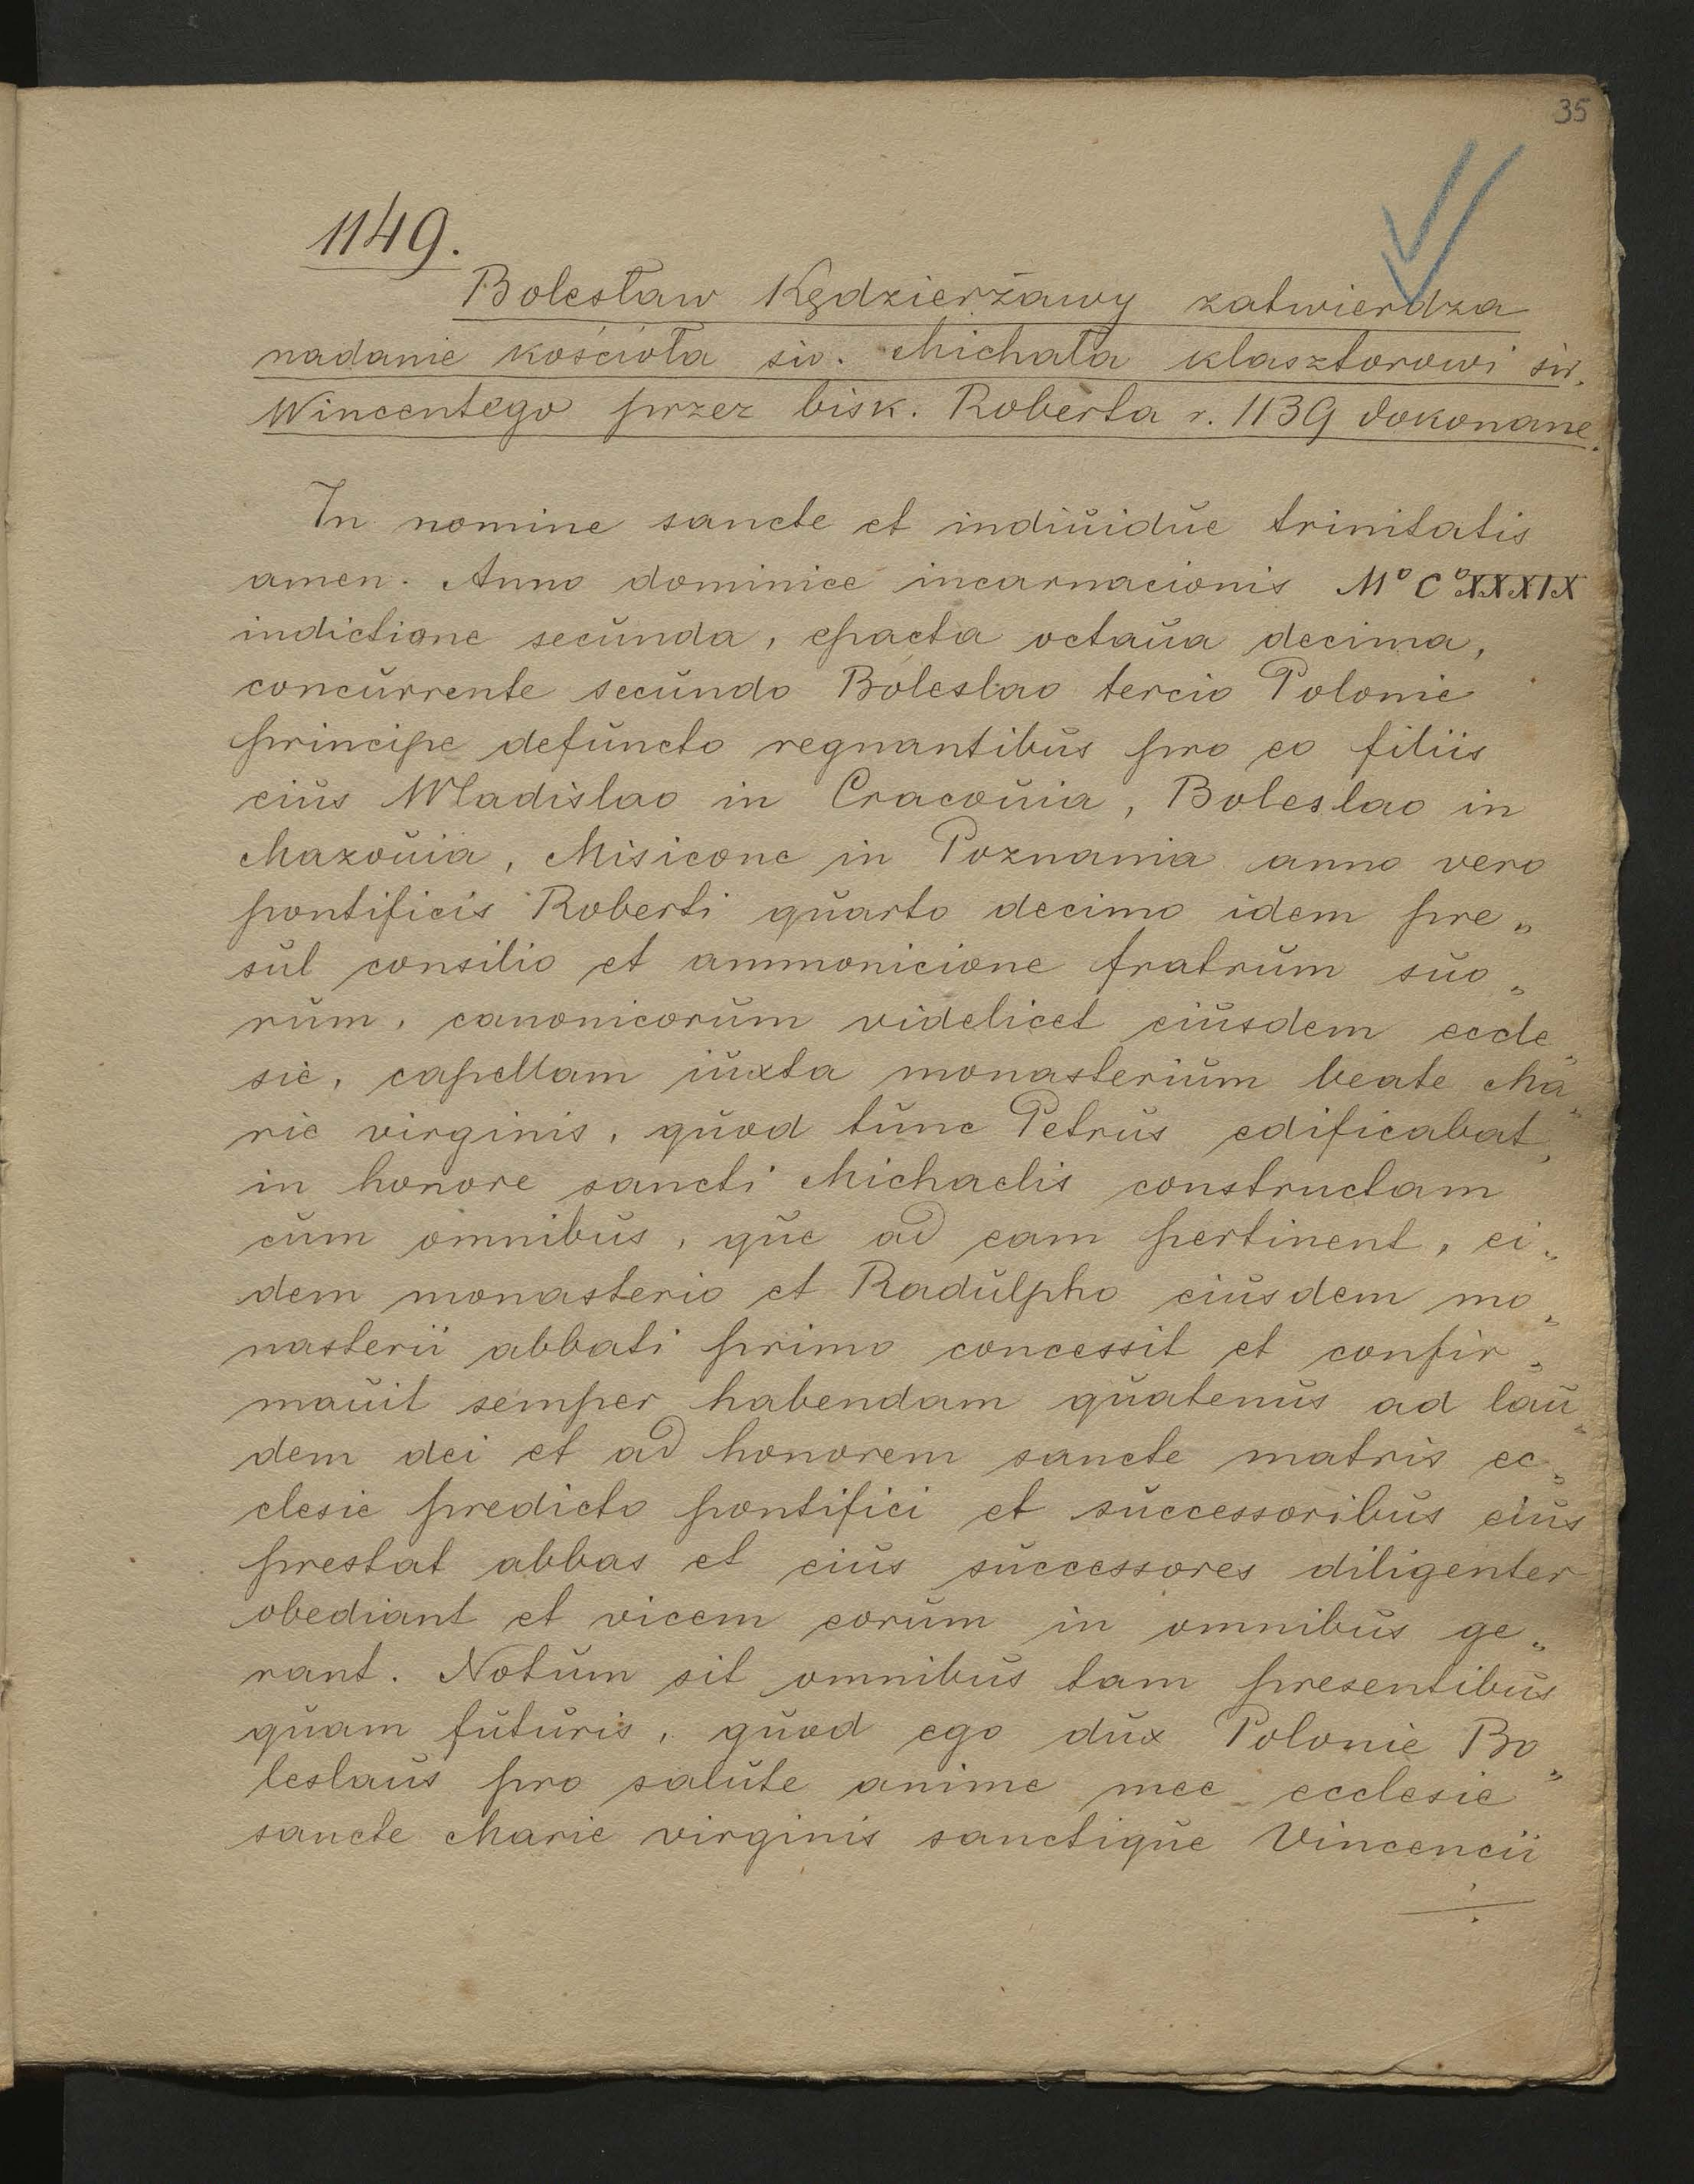 35
1149.
Bolesław Kędzierżawy zatwierdza
nadanie kościoła św. Michała klasztorowi św.
Wincentego przez bisk. Roberta r. 1139 dokonane.
In nomine sancte et indiuidue trinitatis
amen. Anno dominice incarnacionis M° C° XXXIX
indictione secunda, epacta octaua decima,
concurrente secundo Boleslao tercio Polonie
principe defuncto regnantibus pro eo filiis
eius Wladislao in Cracouia, Boleslao in
Mazouia, Misicone in Poznania anno vero
pontificis Roberti quarto decimo idem pre„
sul consilio et ammonicione fratrum suo„
rum, canonicorum videlicet eiusdem eccle„
sie, capellam iuxta monasterium beate Ma„
rie virginis, quod tunc Petrus edificabat,
in honore sancti Michaelis constructam
cum omnibus, que ad eam pertinent, ei„
dem monasterio et Radulpho eiusdem mo„
nasterii abbati primo concessit et confir„
mauit semper habendam quatenus ad lau„
dem dei et ad honorem sancte matris ec„
clesie predicto pontifici et successoribus eius
prestat abbas et eius successores diligenter
obediant et vicem eorum in omnibus ge„
rant. Notum sit omnibus tam presentibus
quam futuris, quod ego dux Polonie Bo„
leslaus pro salute anime mee ecclesie
sancte Marie virginis sanctique Vincencii